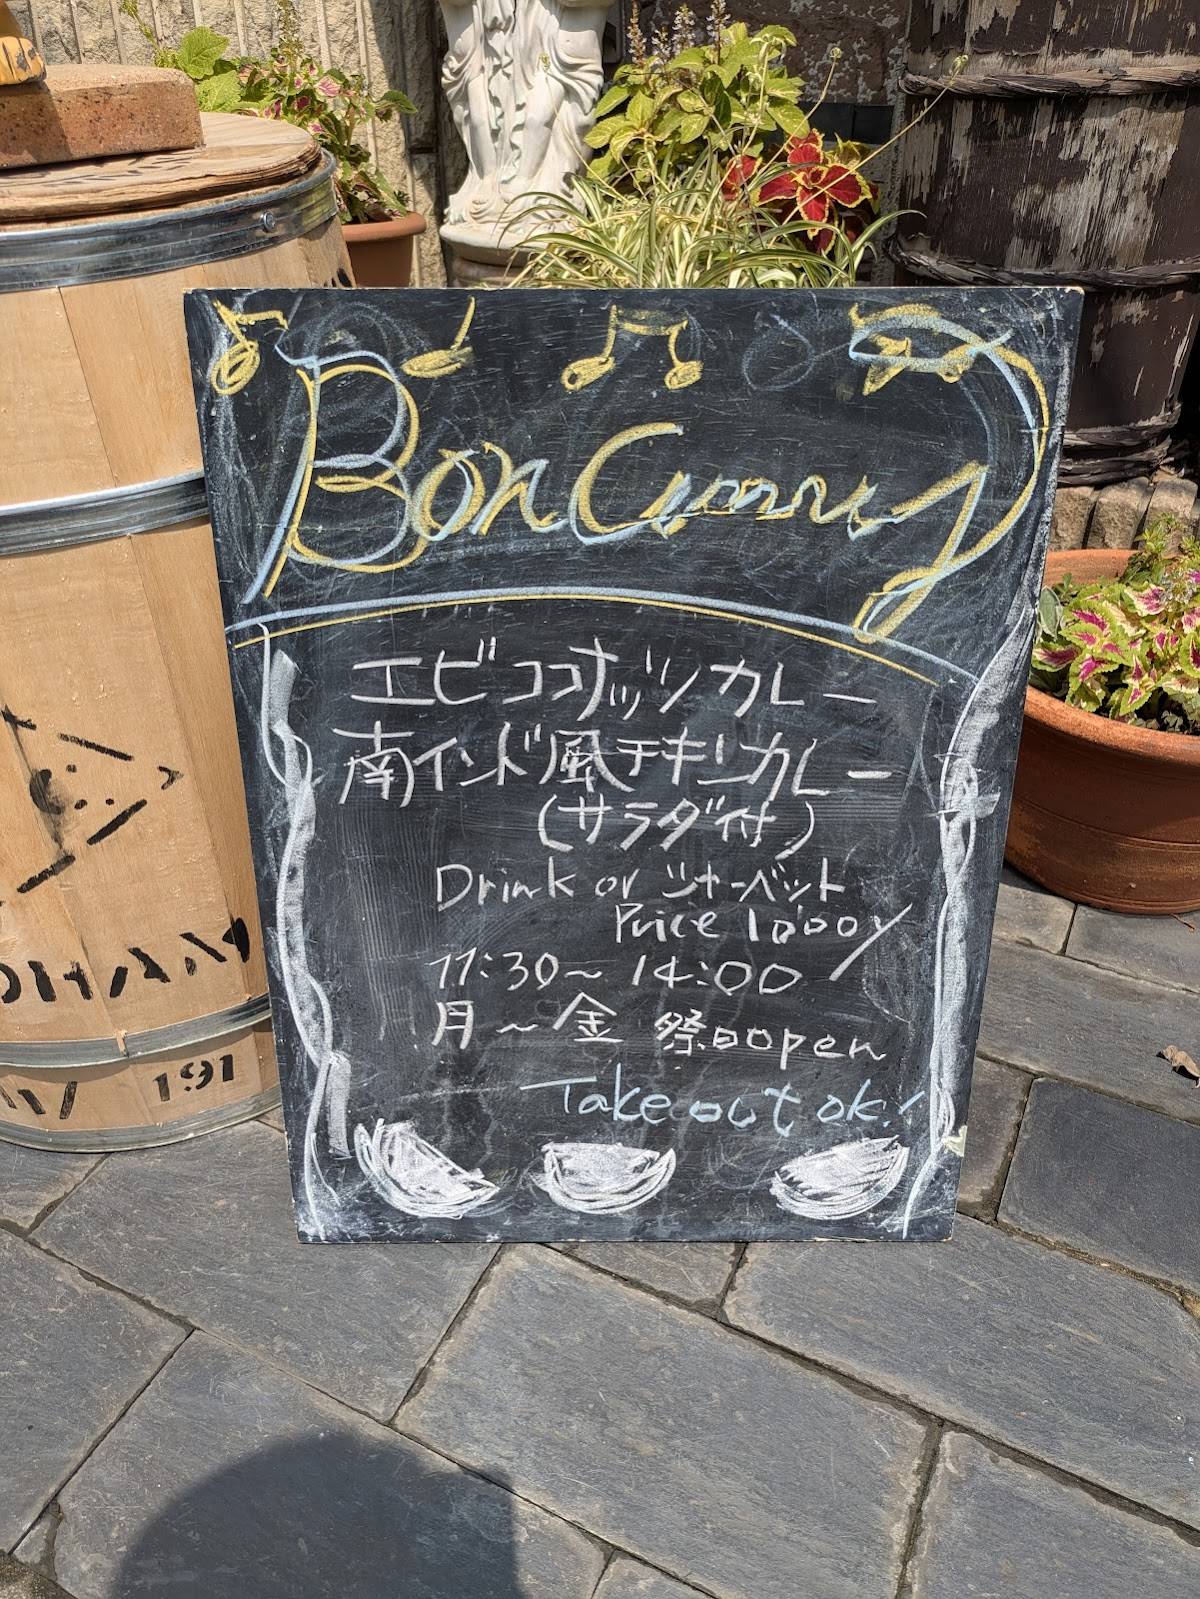 Bon Curry
エビココナッツカレー
南インド風チキンカレー
(サラダ付)
Drink or シャーベット
Price 1,000/
11:30~14:00
月~金 祭日open
Take out ok!
191